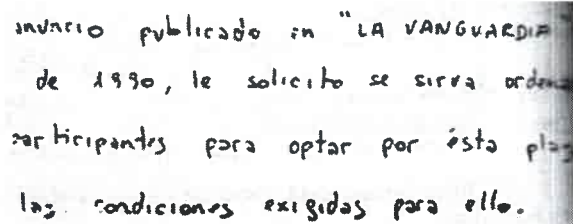 anuncio publicado en "LA VANGUARDIA"
de 1990, le solicito se sirva ordena
participantes para optar por ésta plaz
las condiciones exigidas para ello.